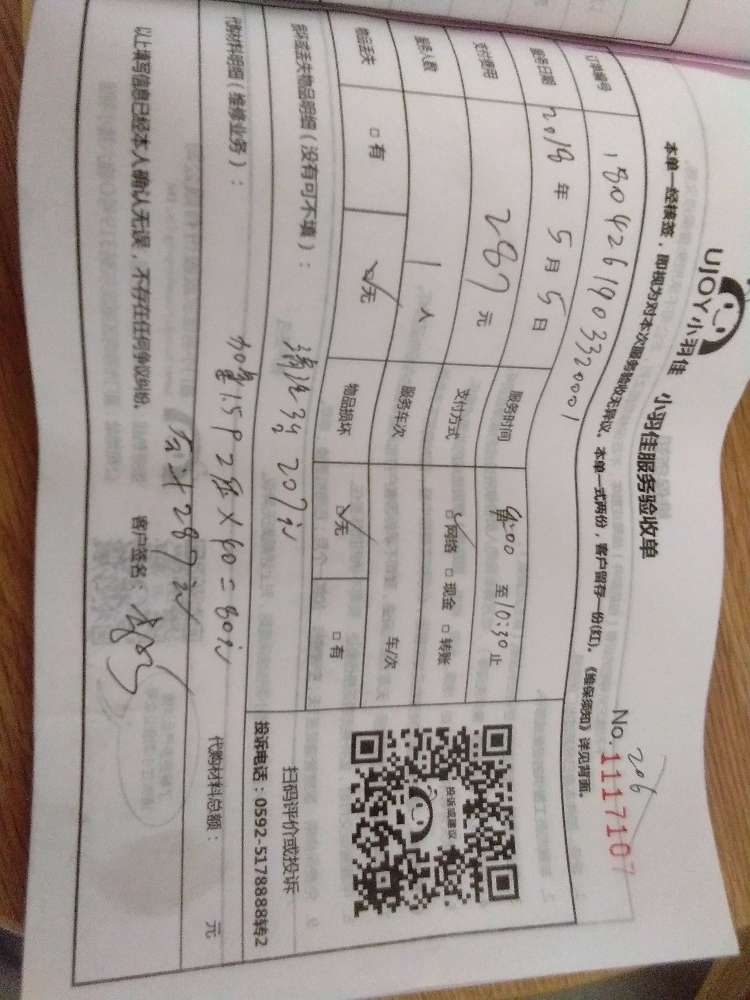 UJOY小羽佳 小羽佳服务验收单
206
No. 1117107
本单一经接签，即视为对本次服务验收无异议。本单一式两份，客户留存一份(红)。《维保须知》详见背面。
订单编号 1804261903320001
服务日期 2018 年 5 月 5 日 服务时间 :00 至 10:30 止
支付费用 287 元 支付方式 ☑网络 □现金 □转账
服务人数 1 人 服务车次 车/次
物品丢失 □有 ☑无 物品损坏 ☑无 □有
损坏或丢失物品明细（没有可不填）：
清洁 207元
投诉或建议
扫码评价或投诉
投诉电话：0592-5178888转2
代购材料明细（维修业务）：
1.5P 2 × 40 = 80元
代购材料总额： 元
合计287元
以上填写信息已经本人确认无误，不存在任何争议纠纷。 客户签名：